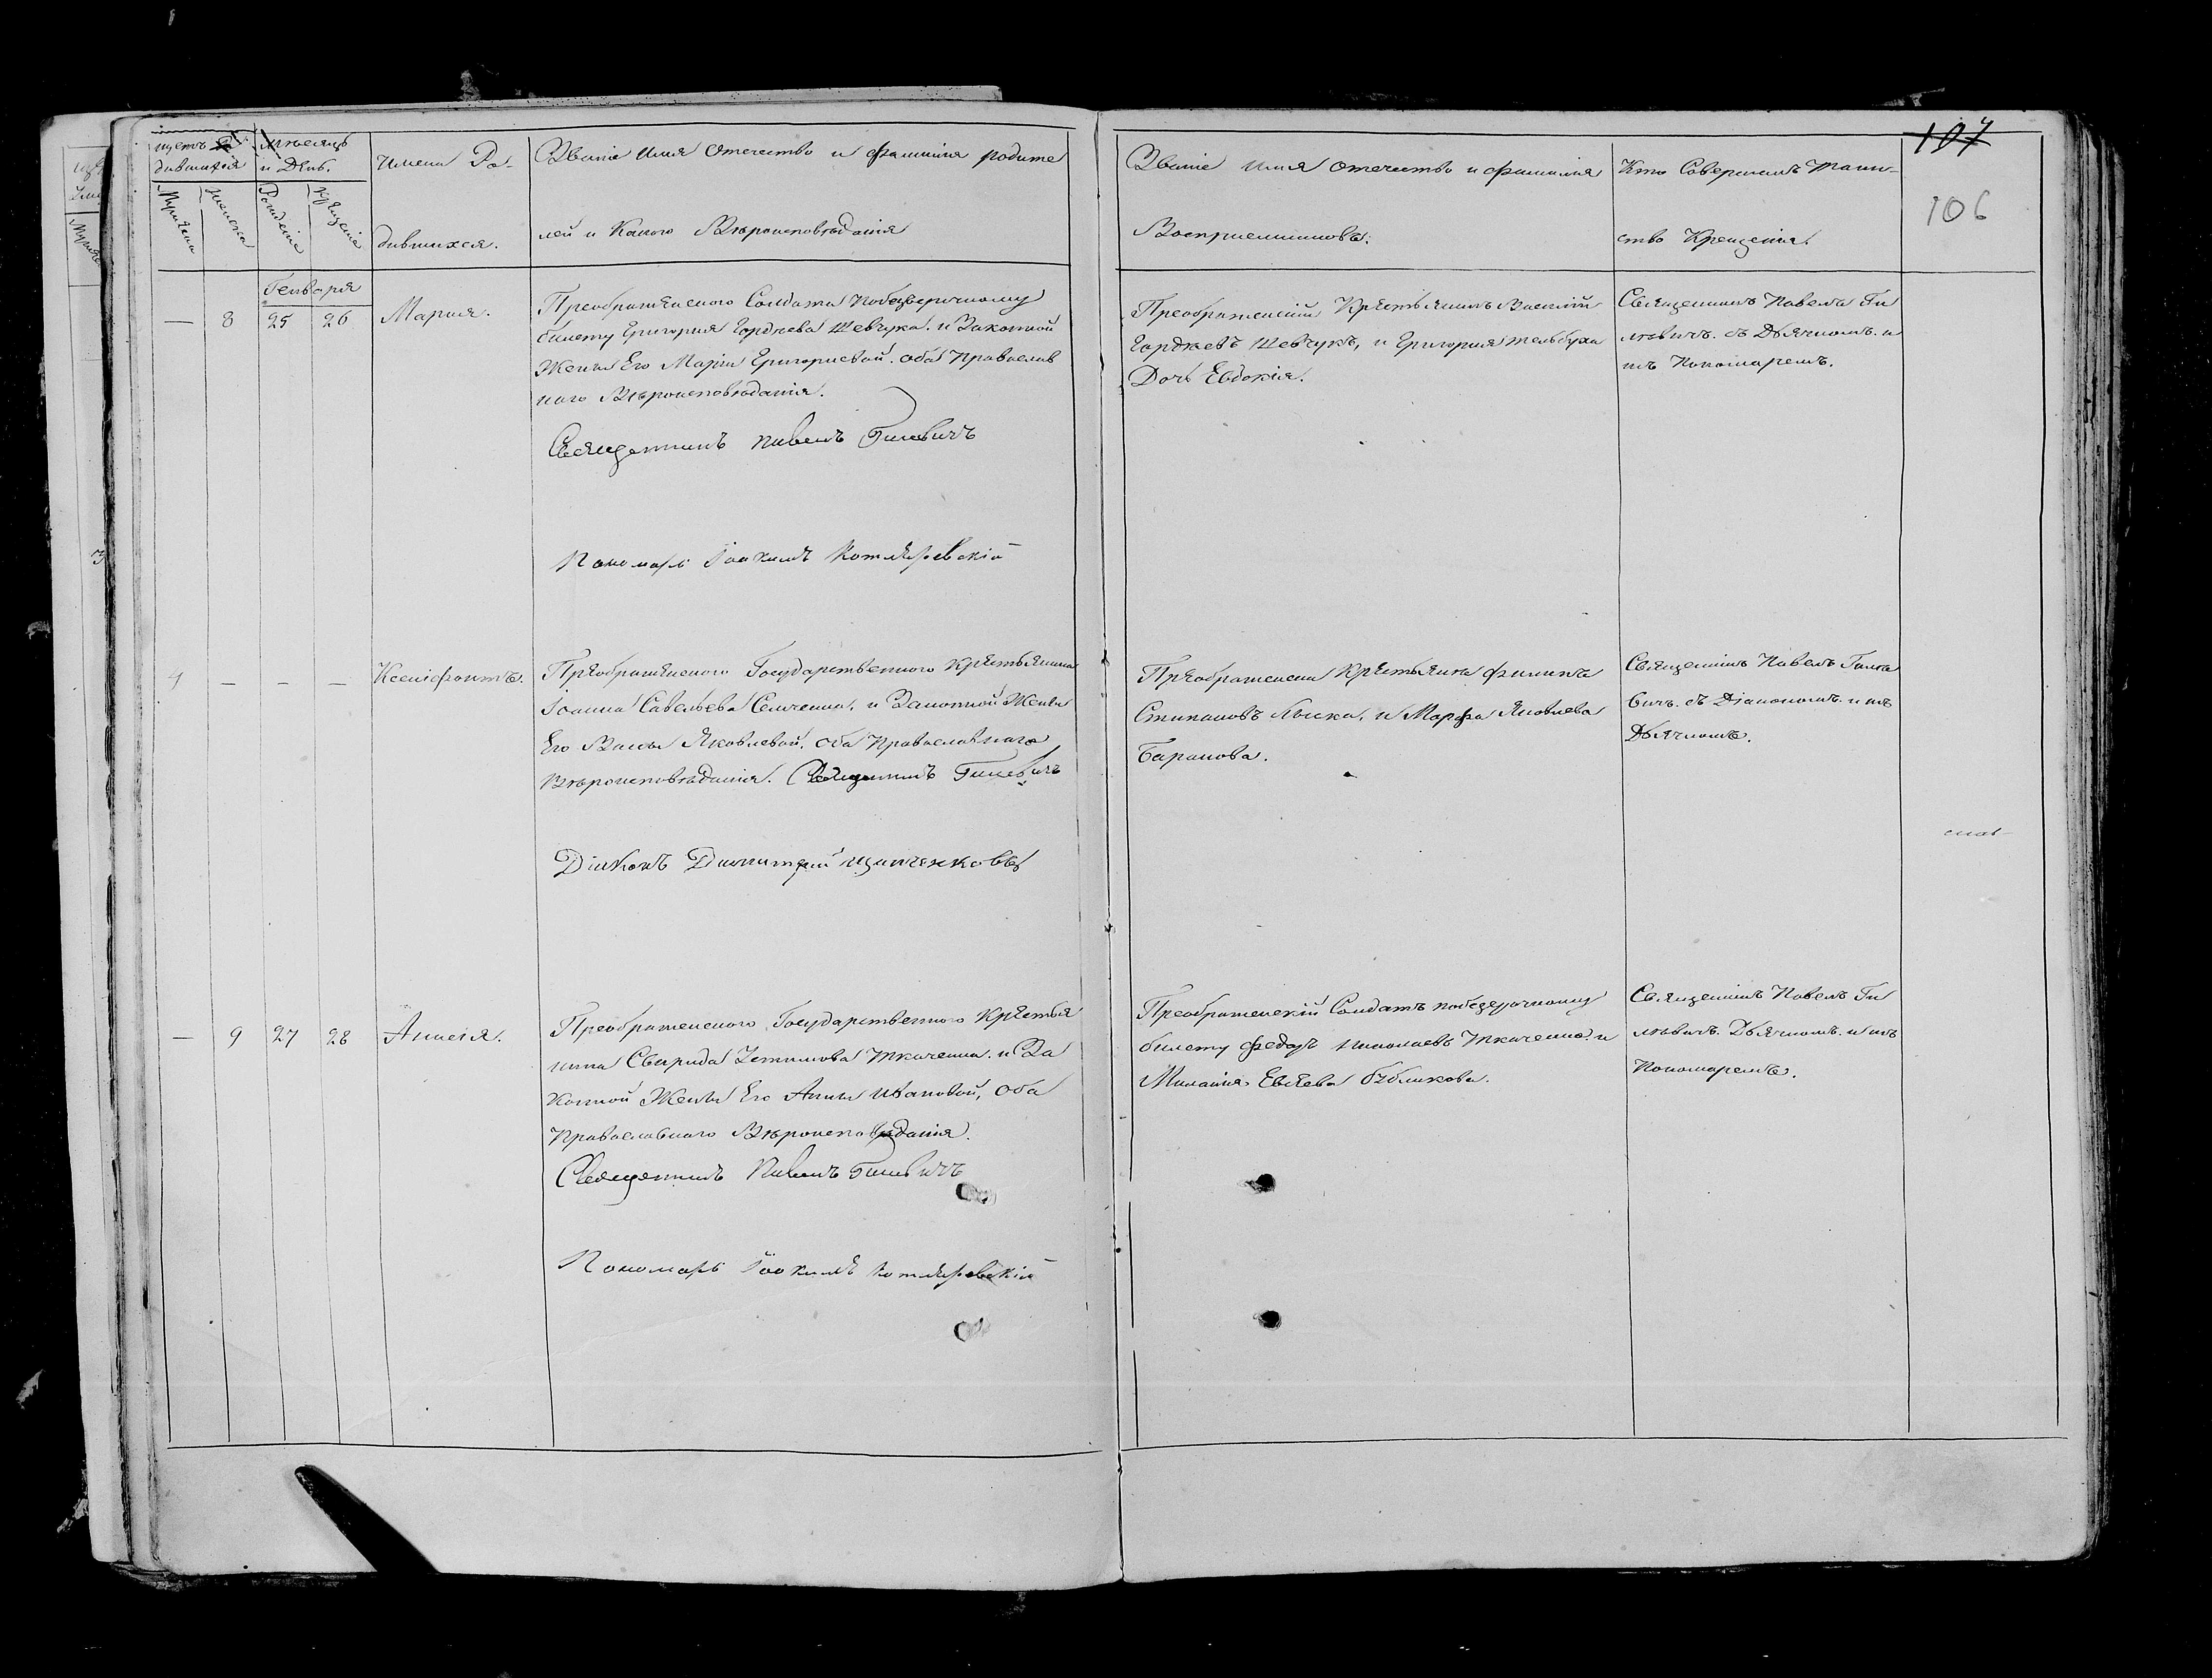 щетъ Ро
дившихся
Мѣсяцъ
и День.
Мужеска
Женска
Рожденія
Крещенія
Имена Ро-
дившихся.
Званіе Имя Отечество и фамилія родите
лей и Какого Вѣроисповѣданія
Званіе имя отечество и фамилія
Воспріемниковъ.
Кто Совершалъ Таин-
ство Крещенія.
107
106
Генваря
— 8 25 26
Мария.
Преображенского Солдата
билету Григория Гордѣева Шевчука. и Законной
Жены Его Маріи Григориевой. оба Православ
ного Вѣроисповѣданія.
Священникъ Павелъ Гилевичъ
Пономарь Іоакимъ Котляревскій
Преображенскій Крестьянинъ Василій
Гордѣевъ Шевчукъ, и Григория
Дочь Евдокія.
Священникъ Павелъ Ги
левичъ. съ Дьячкомъ. и
Пономаремъ.
4 — — —
Ксенофонтъ.
Преображенского Государственного Крестьянина
Іоанна Савельева и Законной Жены
Его Яковлевой. Оба Православного
Вѣроисповѣданія. Священникъ Гилевичъ
Діаконъ Димитрій
Преображенски Крестьяне Филипъ
Степановъ и Марфа Яковлева
Баранова.
Священникъ Павелъ Гиле
вичъ. съ Діакономъ. и
Дьячкомъ.
— 9 27 28
Анисія.
Преображенского Государственного Крестья
нина Свирида Ткаченка. и За
конной Жены Его Анны Ивановой, Оба
Православного Вѣроисповѣданія.
Священникъ Павелъ Гилевичъ
Пономарь Іоакимъ Котляревскій
Преображенскій Солдатъ
билету Федоръ Николаевъ Ткаченко. и
Миланія
Священникъ Павелъ Ги
левичъ. Дьячкомъ. и
Пономаремъ.